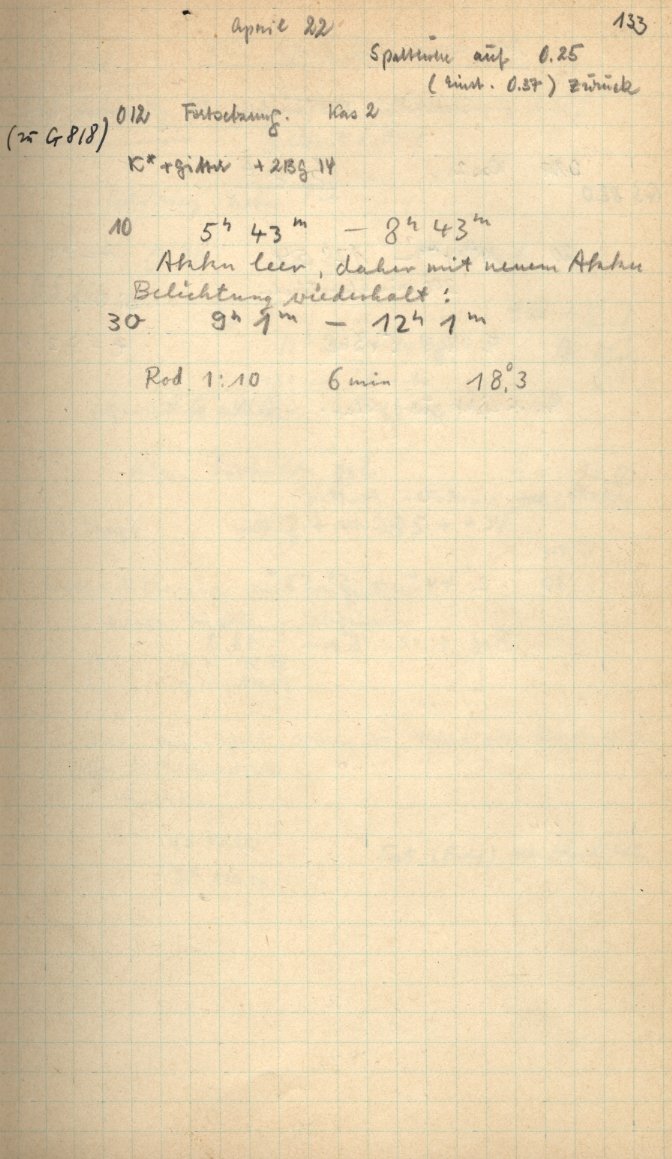 133
April 22
Spalthöhe auf 0.25
(Einst. 0.37) zurück
012 Fortsetzung. Kas 2
(zu G 818)
K* + Gitter + 2BG 14
10 5ʰ 43ᵐ – 8ʰ 43ᵐ
Akku leer, daher mit neuem Akku
Belichtung wiederholt:
30 9ʰ 1ᵐ – 12ʰ 1ᵐ
Rod 1:10 6 min 18.°3